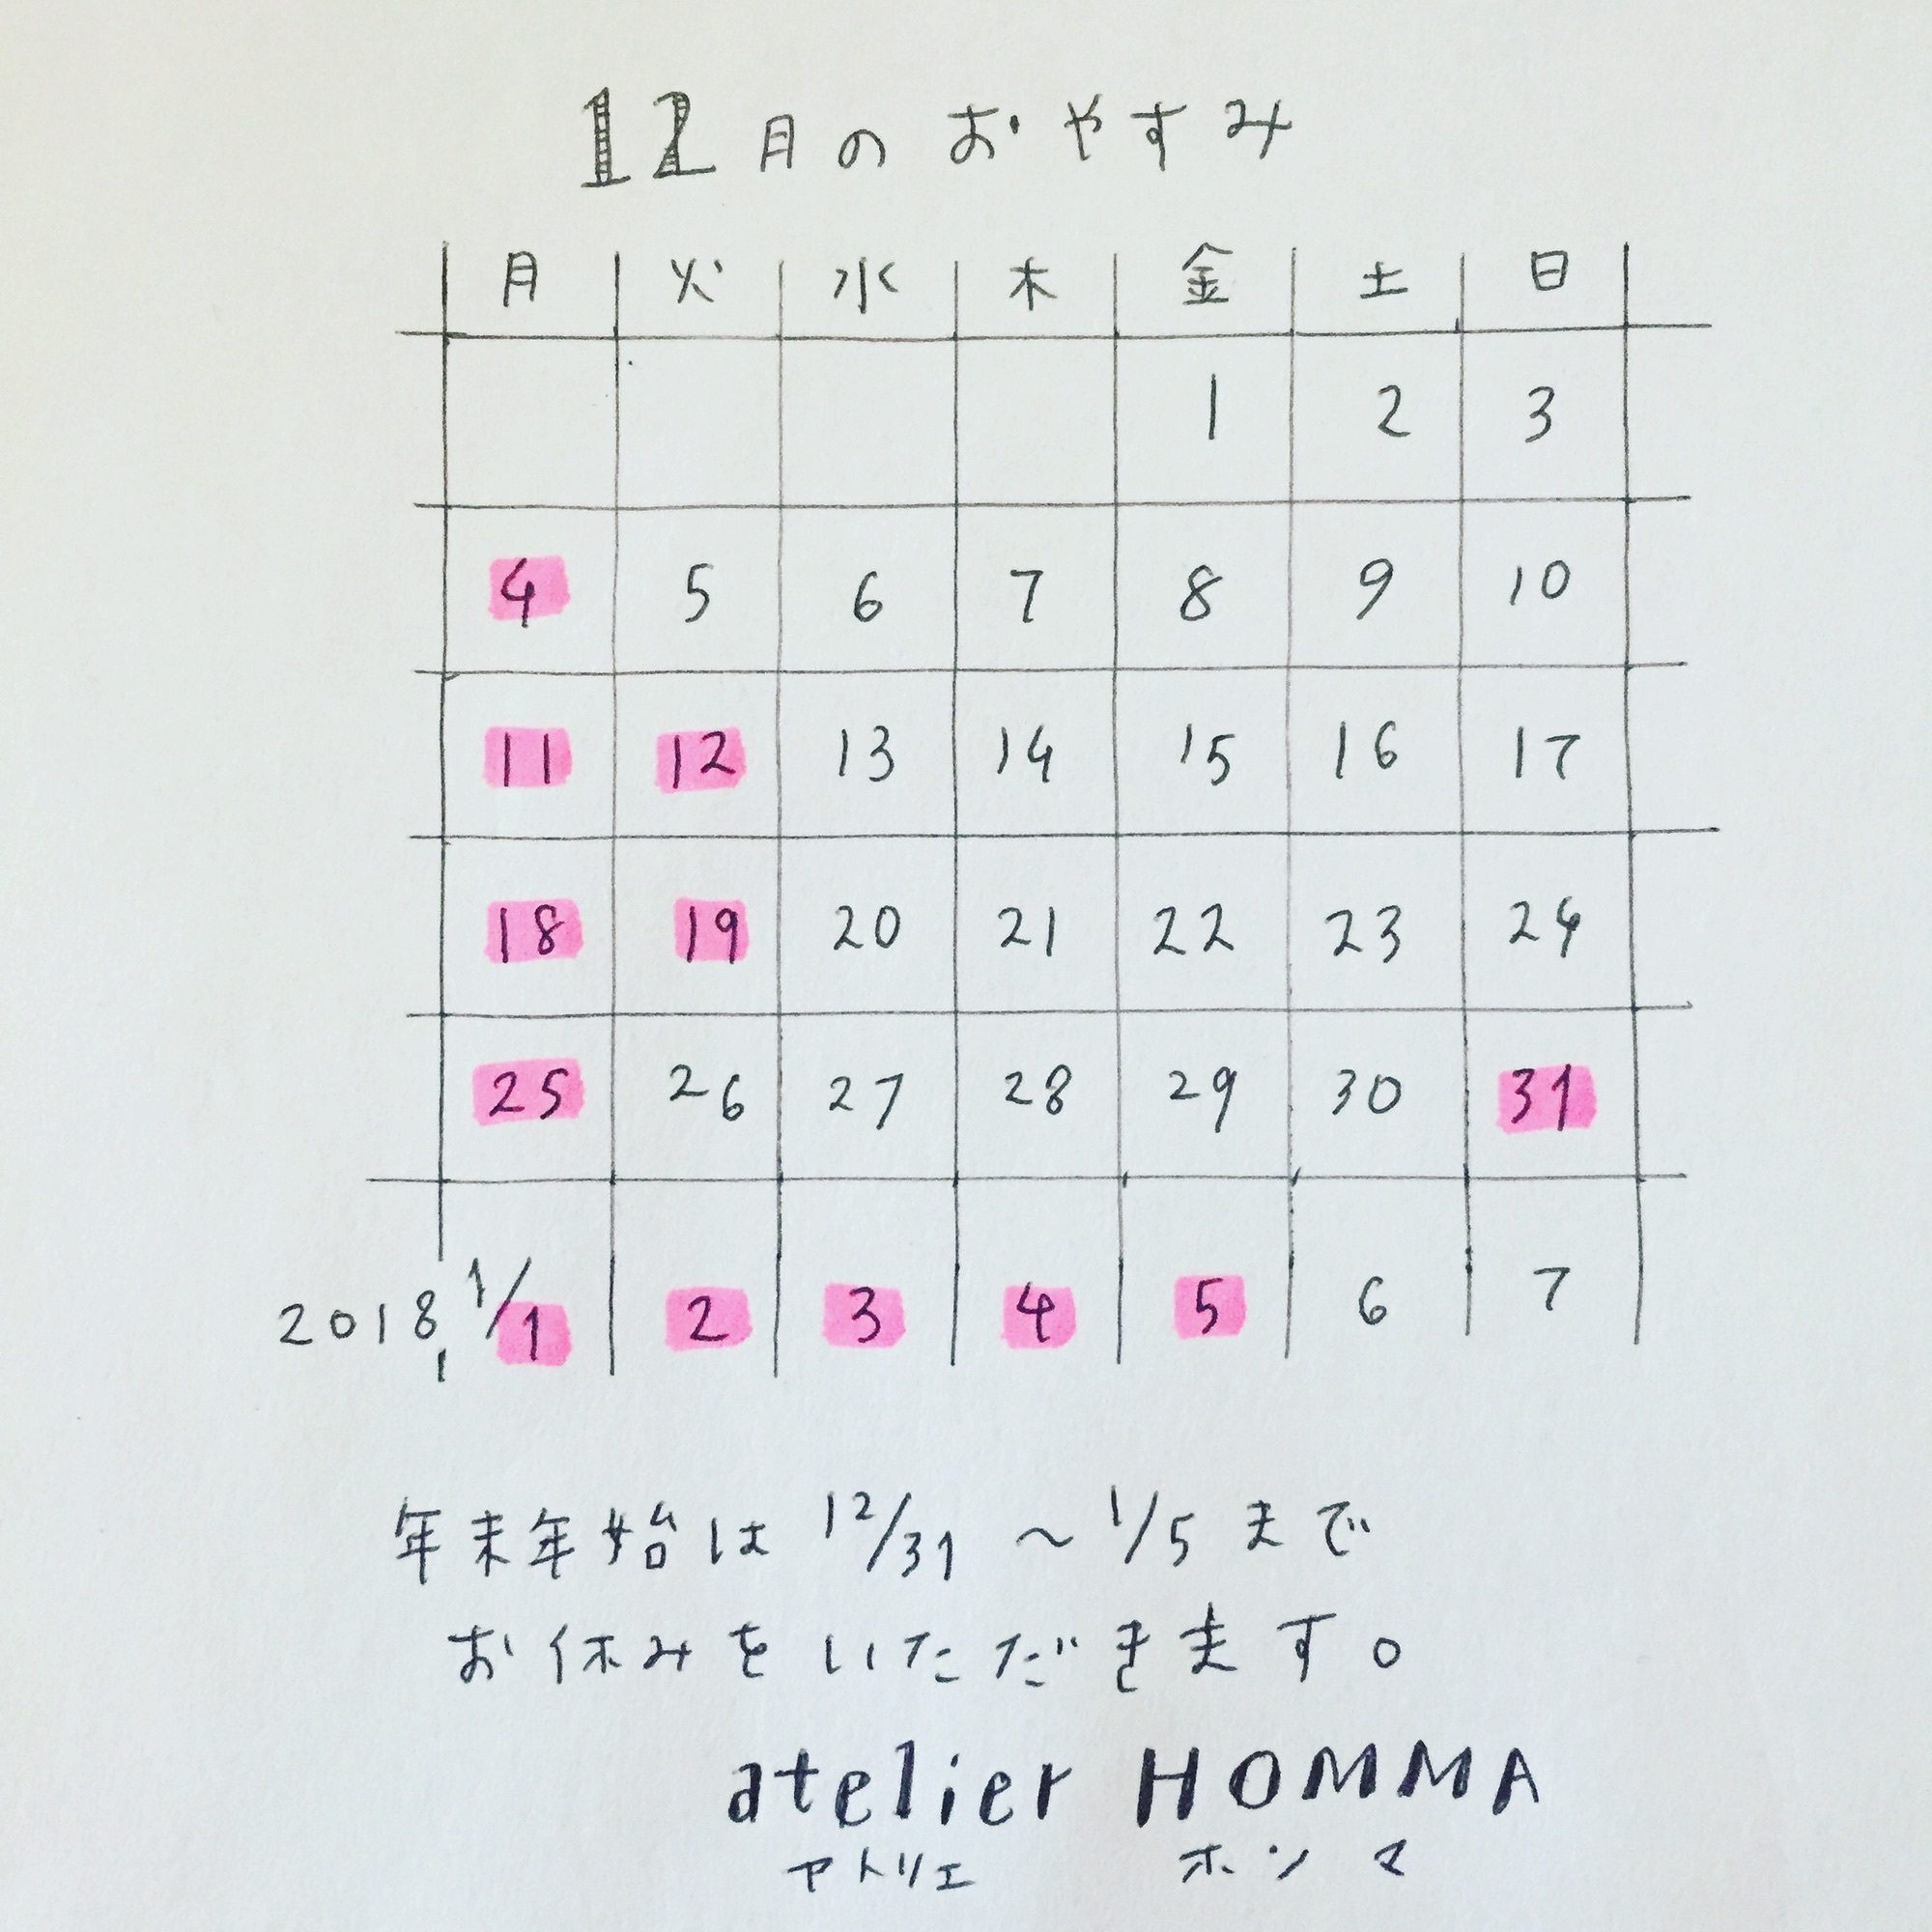 12月のおやすみ
月 火 水 木 金 土 日
1 2 3
4 5 6 7 8 9 10
11 12 13 14 15 16 17
18 19 20 21 22 23 24
25 26 27 28 29 30 31
2018, 1/1 2 3 4 5 6 7
年末年始は 12/31 〜 1/5 まで
お休みをいただきます。
atelier HOMMA
アトリエ ホンマ